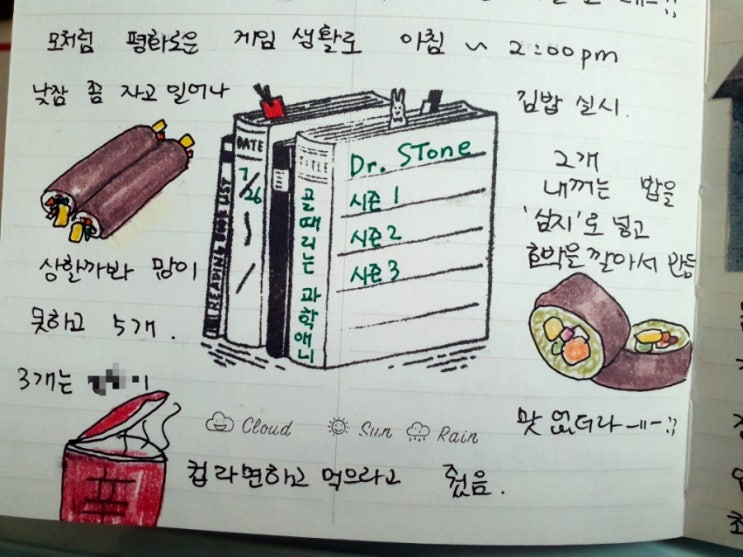 모처럼 평화로운 게임 생활로 아침 ~ 2:00pm
낮잠 좀 자고 일어나
김밥 실시.
2개
내꺼는 밥을
'삼지'로 넣고
호박을 깔아서 만듬
맛 없더라
상할까봐 많이
못하고 5개.
3개는
컵라면하고 먹으라고 줬음.
READING BOOK LIST
DATE
7/26
~
/
TITLE
골때리는 과학애니
Dr. STone
시즌 1
시즌 2
시즌 3
Cloud
Sun
Rain